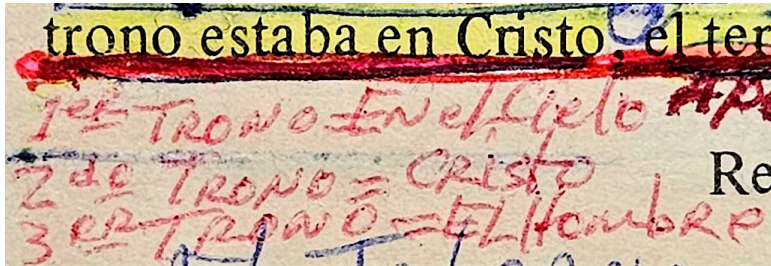 trono estaba en Cristo, el ter
1er TRONO=En el Cielo Apo
Re
2do TRONO=CRISTO
3er TRONO=El Hombre